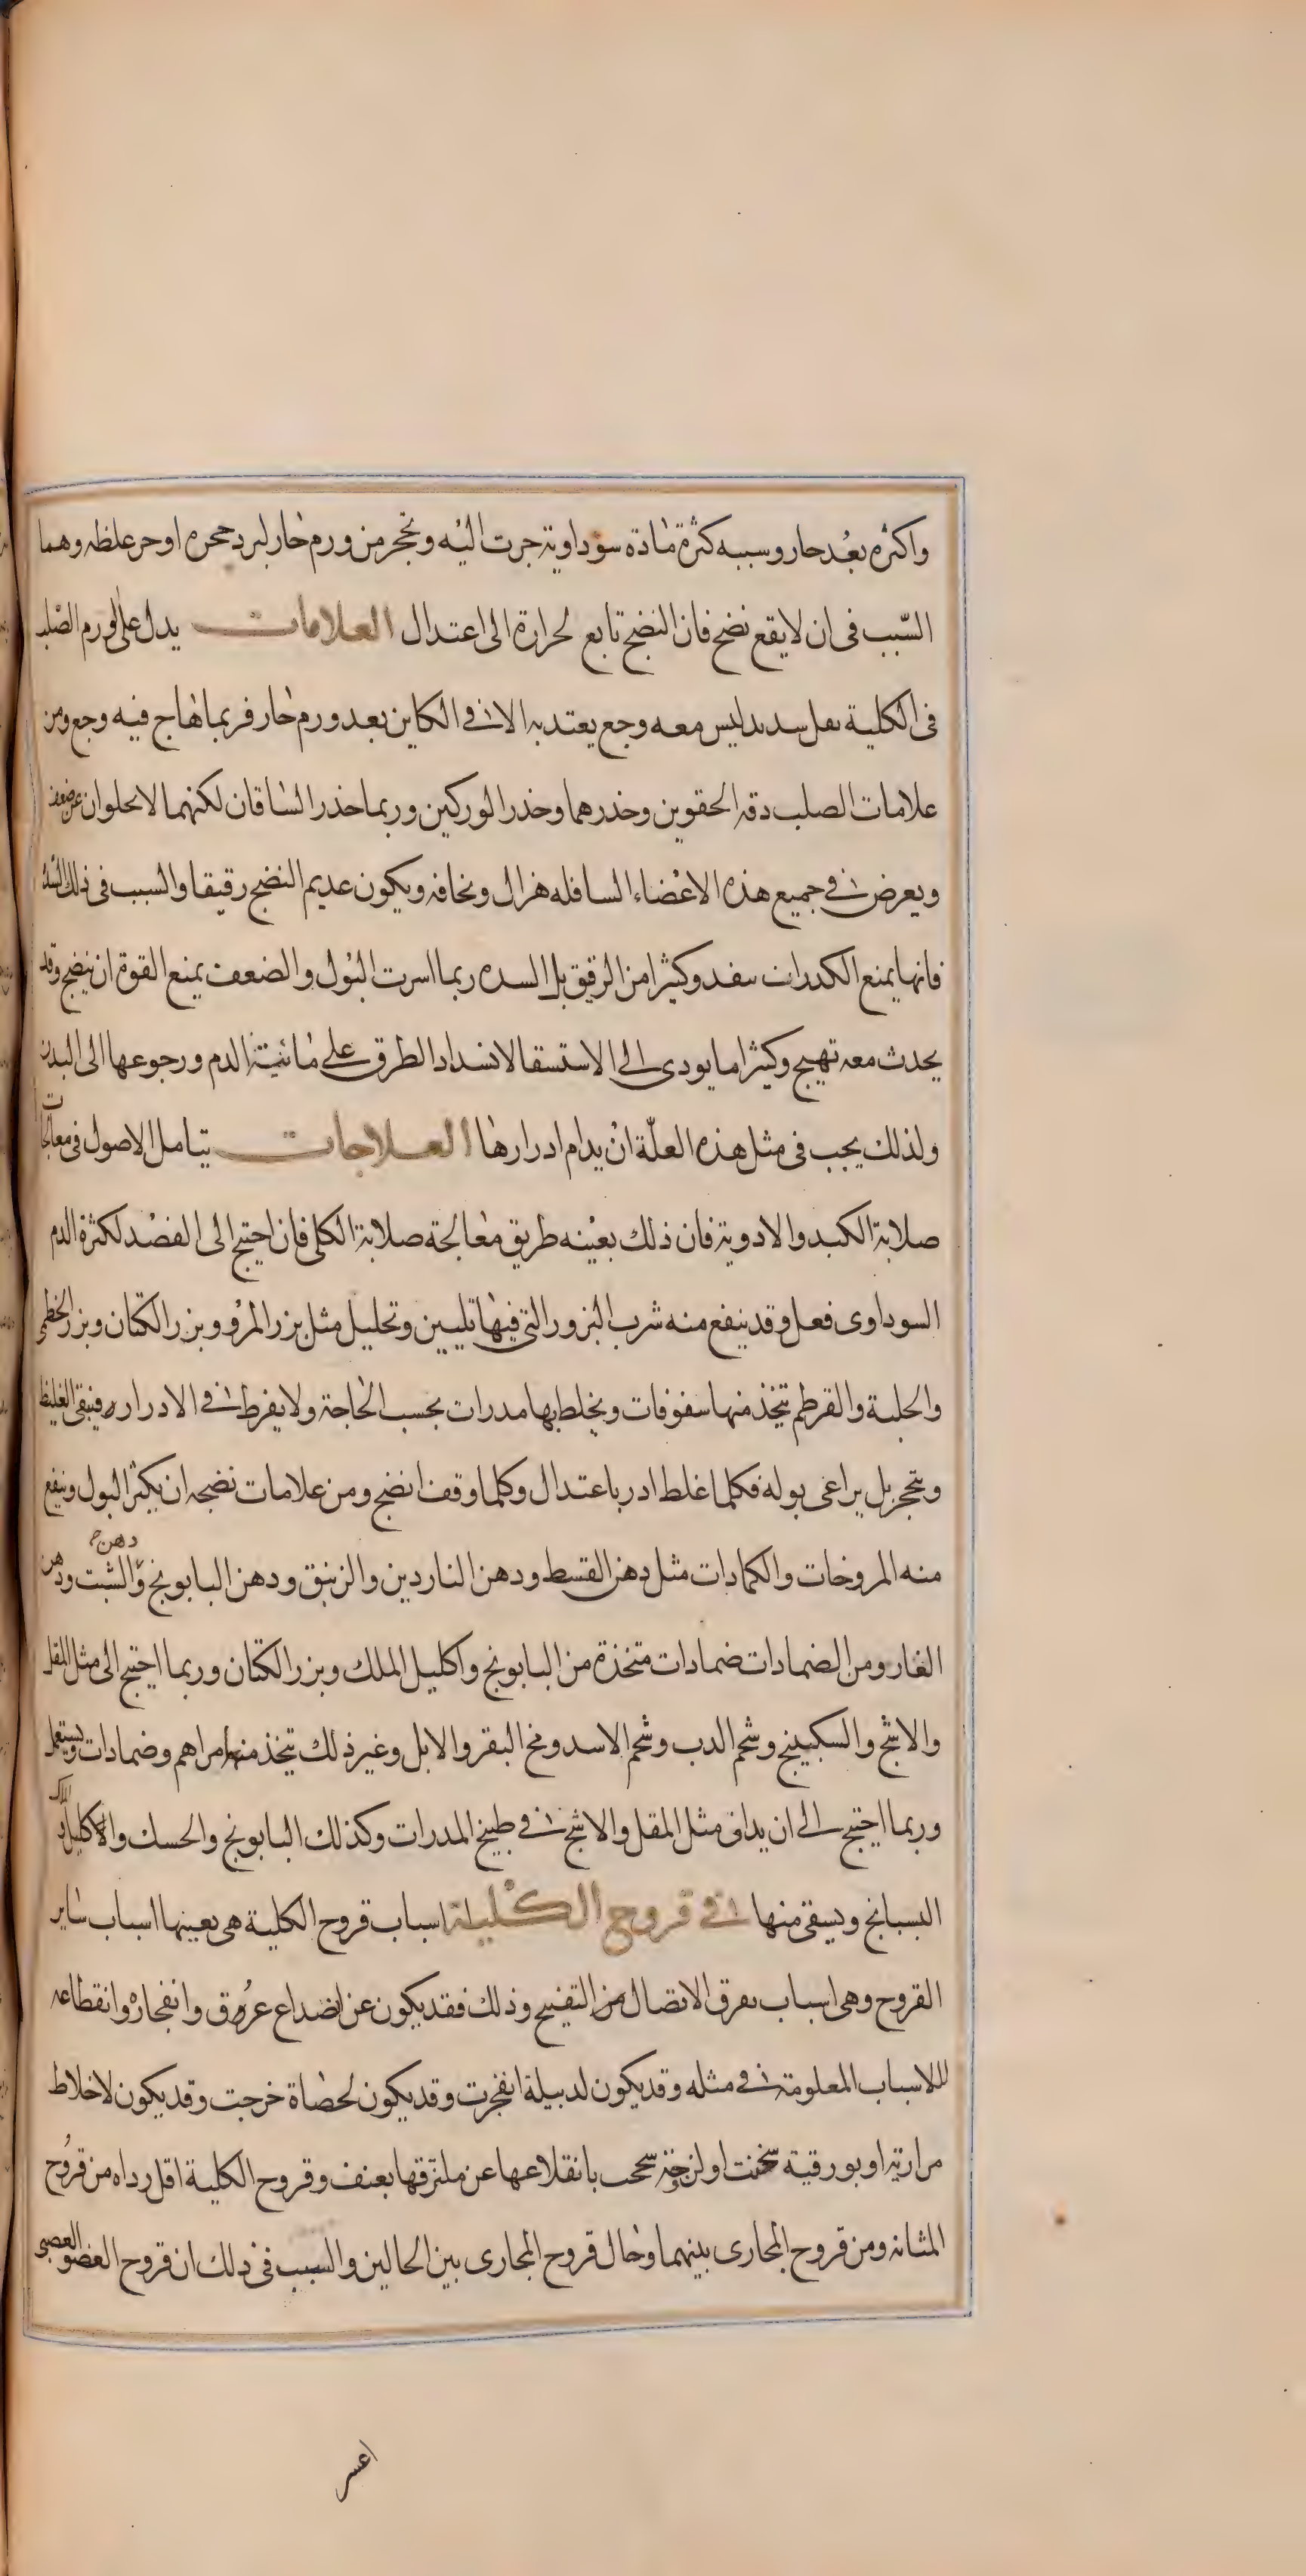 واكثره بعد حار وسببه كثرة مادة سوداوية جرت اليه وتحجر من ورم حار لبرد حجره او حر غلظه وهما
السبب فى ان لا يقع نضج فان النضج تابع لحرارة الى اعتدال العلامات يدل على الورم الصلب
فى الكلية ثقل شديد ليس معه وجع يعتد به الا فى الكاين بعد ورم حار فربما هاج فيه وجع ومن
علامات الصلب دقة الحقوين وخدرهما وخدر الوركين وربما خدر الساقان لكنهما لا يخلوان عن ضعف
ويعرض فى جميع هذه الاعضاء السافله هزال ونحافه ويكون عديم النضج رقيقا والسبب فى ذلك السدة
فانها يمنع الكدرات ينفد وكثيرا من الرقيق بل السده ربما اسرت البول والضعف يمنع القوة ان ينضج وقد
يحدث معه تهيج وكثيرا ما يودى الى الاستسقا لانسداد الطرق على مائية الدم ورجوعها الى البدن
ولذلك يجب فى مثل هذه العلّة ان يدام ادرارها العلاجات يتامل الاصول فى معالجات
صلابة الكبد والادوية فان ذلك بعينه طريق معالجة صلابة الكلى فان احتيج الى الفصد لكثرة الدم
السوداوى فعل وقد ينفع منه شرب البزور التى فيها تليين وتحليل مثل بزر المرو وبزر الكتان وبزر الخطمى
والحلبة والقرطم يتخذ منها سفوفات ويخلط بها مدرات بحسب الحاجة ولا يفرط فى الادرار فيبقى الغليظ
ويتحجر بل يراعى بوله فكلما غلظ ادر باعتدال وكلما وقف انضج ومن علامات نضجه ان يكثر البول وينفع
منه المروخات والكمادات مثل دهن القسط ودهن الناردين والزنبق ودهن البابونج ودهن الشبت ودهن
الغار ومن الضمادات ضمادات متخذة من البابونج واكليل الملك وبزر الكتان وربما احتيج الى مثل المقل
والاشج والسكبينج وشحم الدب وشحم الاسد ومخ البقر والابل وغير ذلك يتخذ منها مراهم وضمادات ويستعمل
وربما احتيج الى ان يداف مثل المقل والاشج فى طبيخ المدرات وكذلك البابونج والحسك والاكليل الملك
البسبانج ويسقى منها فى قروح الكلية اسباب قروح الكلية هى بعينها اسباب ساير
القروح وهى اسباب تفرق الاتصال من التقيح وذلك فقد يكون عن انصداع عرق وانفجاره وانقطاعه
للاسباب المعلومة فى مثله وقد يكون لدبيلة انفجرت وقد يكون لحصاة خرجت وقد يكون لاخلاط
مرارية او بورقية سخنت او لزجة سحجت بانقلاعها عن ملتزقها بعنف وقروح الكلية اقل رداه من قروح
المثانه ومن قروح المجارى بينهما وحال قروح المجارى بين الحالين والسبب فى ذلك ان قروح العضو العصبى
اعسر